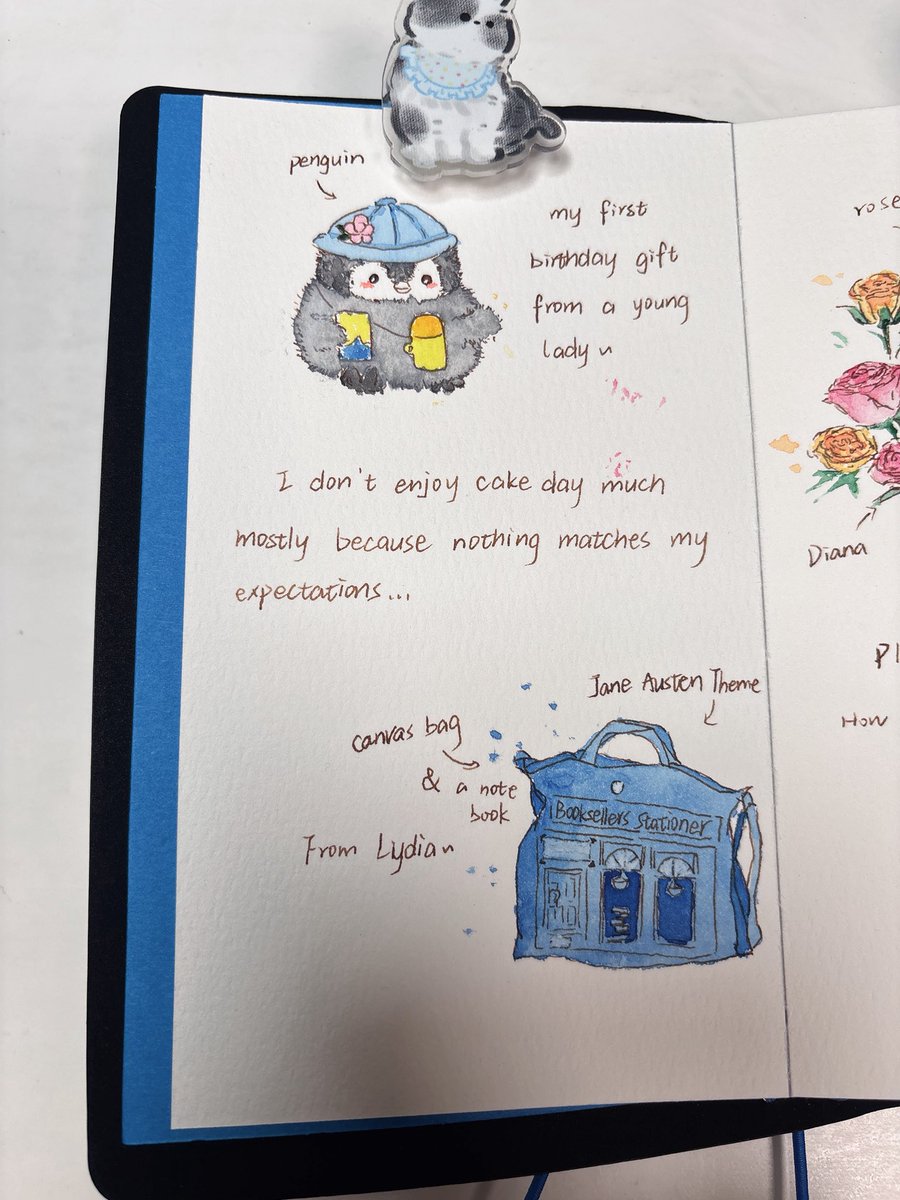 penguin
my first
birthday gift
from a young
lady ~
I don't enjoy cake day much
mostly because nothing matches my
expectations...
Jane Austen Theme
canvas bag
& a note
book
From Lydia ~
Booksellers Stationer
rose
Diana
Pl
How